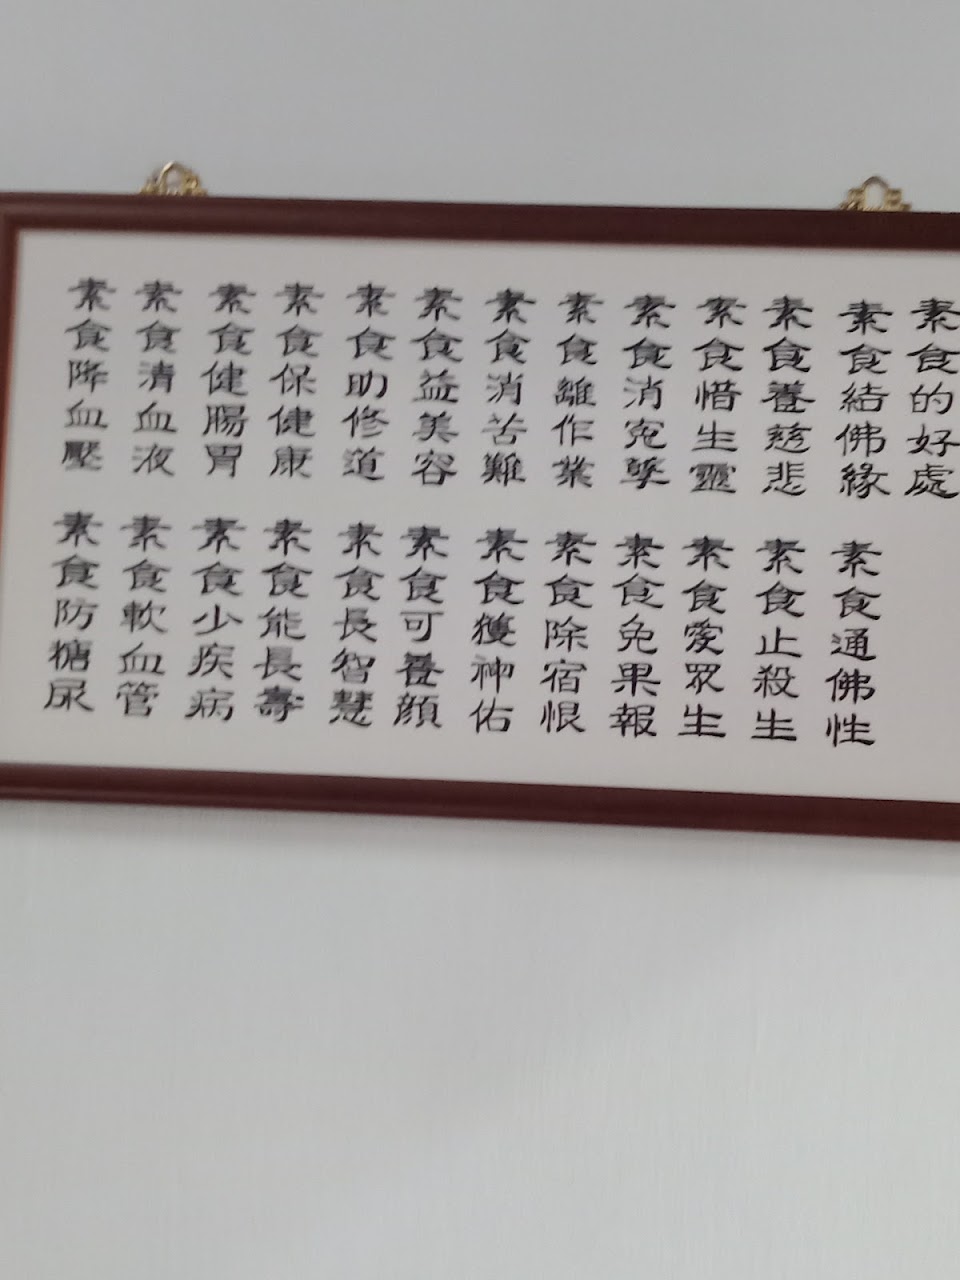 素食的好處
素食結佛緣
素食通佛性
素食養慈悲
素食止殺生
素食惜生靈
素食愛眾生
素食消冤孽
素食免果報
素食離作業
素食除宿恨
素食消苦難
素食獲神佑
素食益美容
素食可養顏
素食助修道
素食長智慧
素食保健康
素食能長壽
素食健腸胃
素食少疾病
素食清血液
素食軟血管
素食降血壓
素食防糖尿